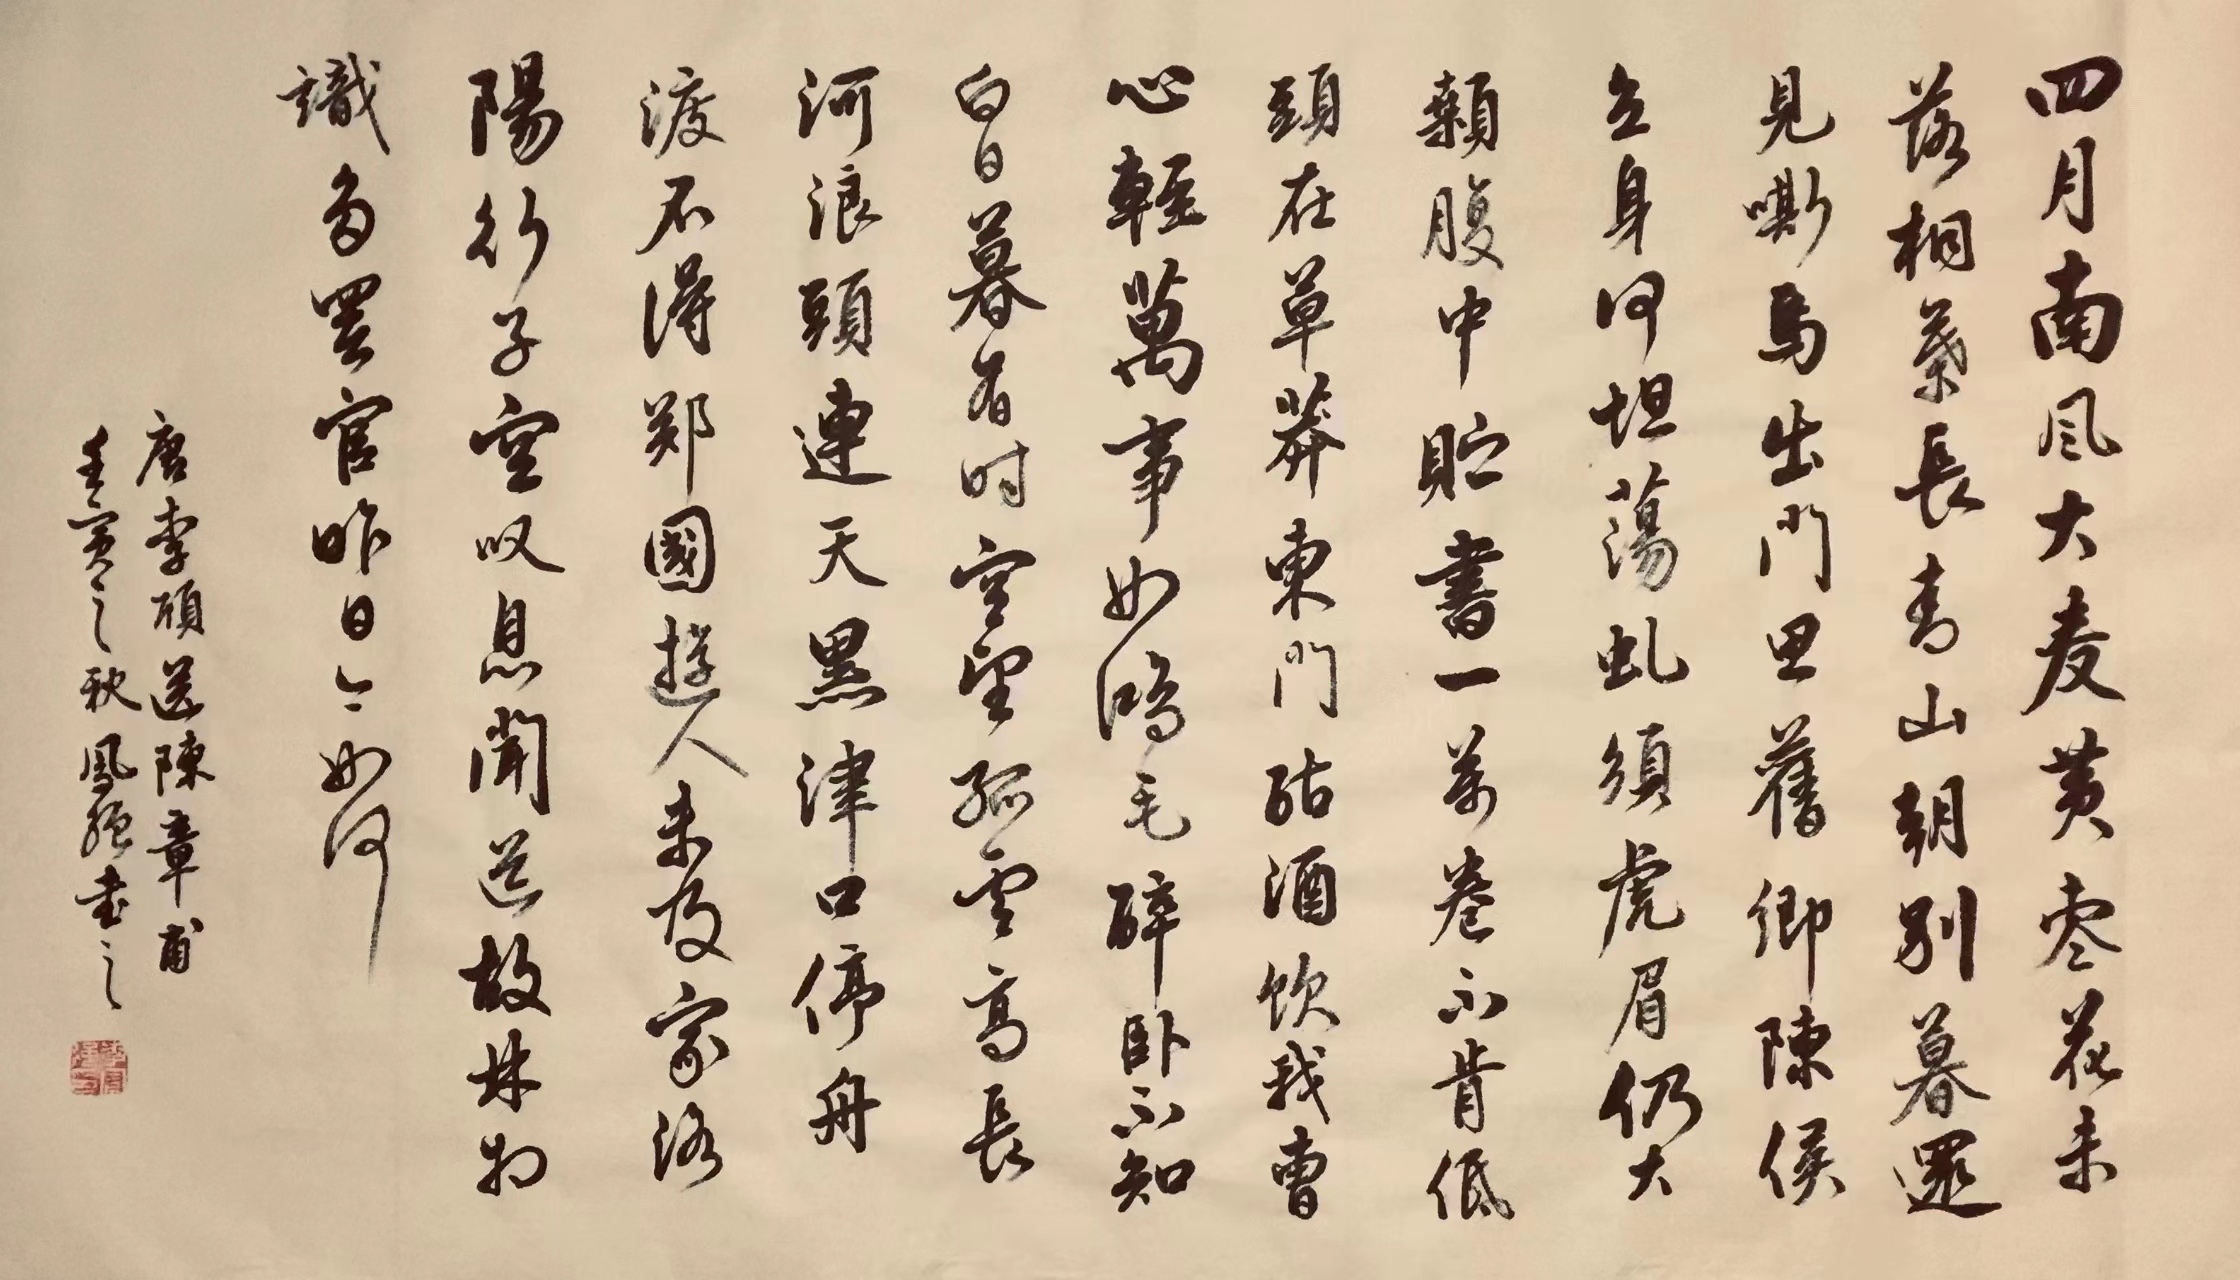 四月南风大麦黄枣花未
落桐葉長青山朝别暮還
見嘶馬出門思舊鄉陳侯
立身何坦蕩虬須虎眉仍大
顙腹中貯書一萬卷不肯低
頭在草莽東門酤酒飲我曹
心輕萬事如鴻毛醉卧不知
白日暮有时空望孤雲高長
河浪頭連天黑津口停舟
渡不得郑國遊人未及家洛
陽行子空叹息聞道故林相
識多罢官昨日今如何
唐李頎送陳章甫
壬寅之秋鳳强书之